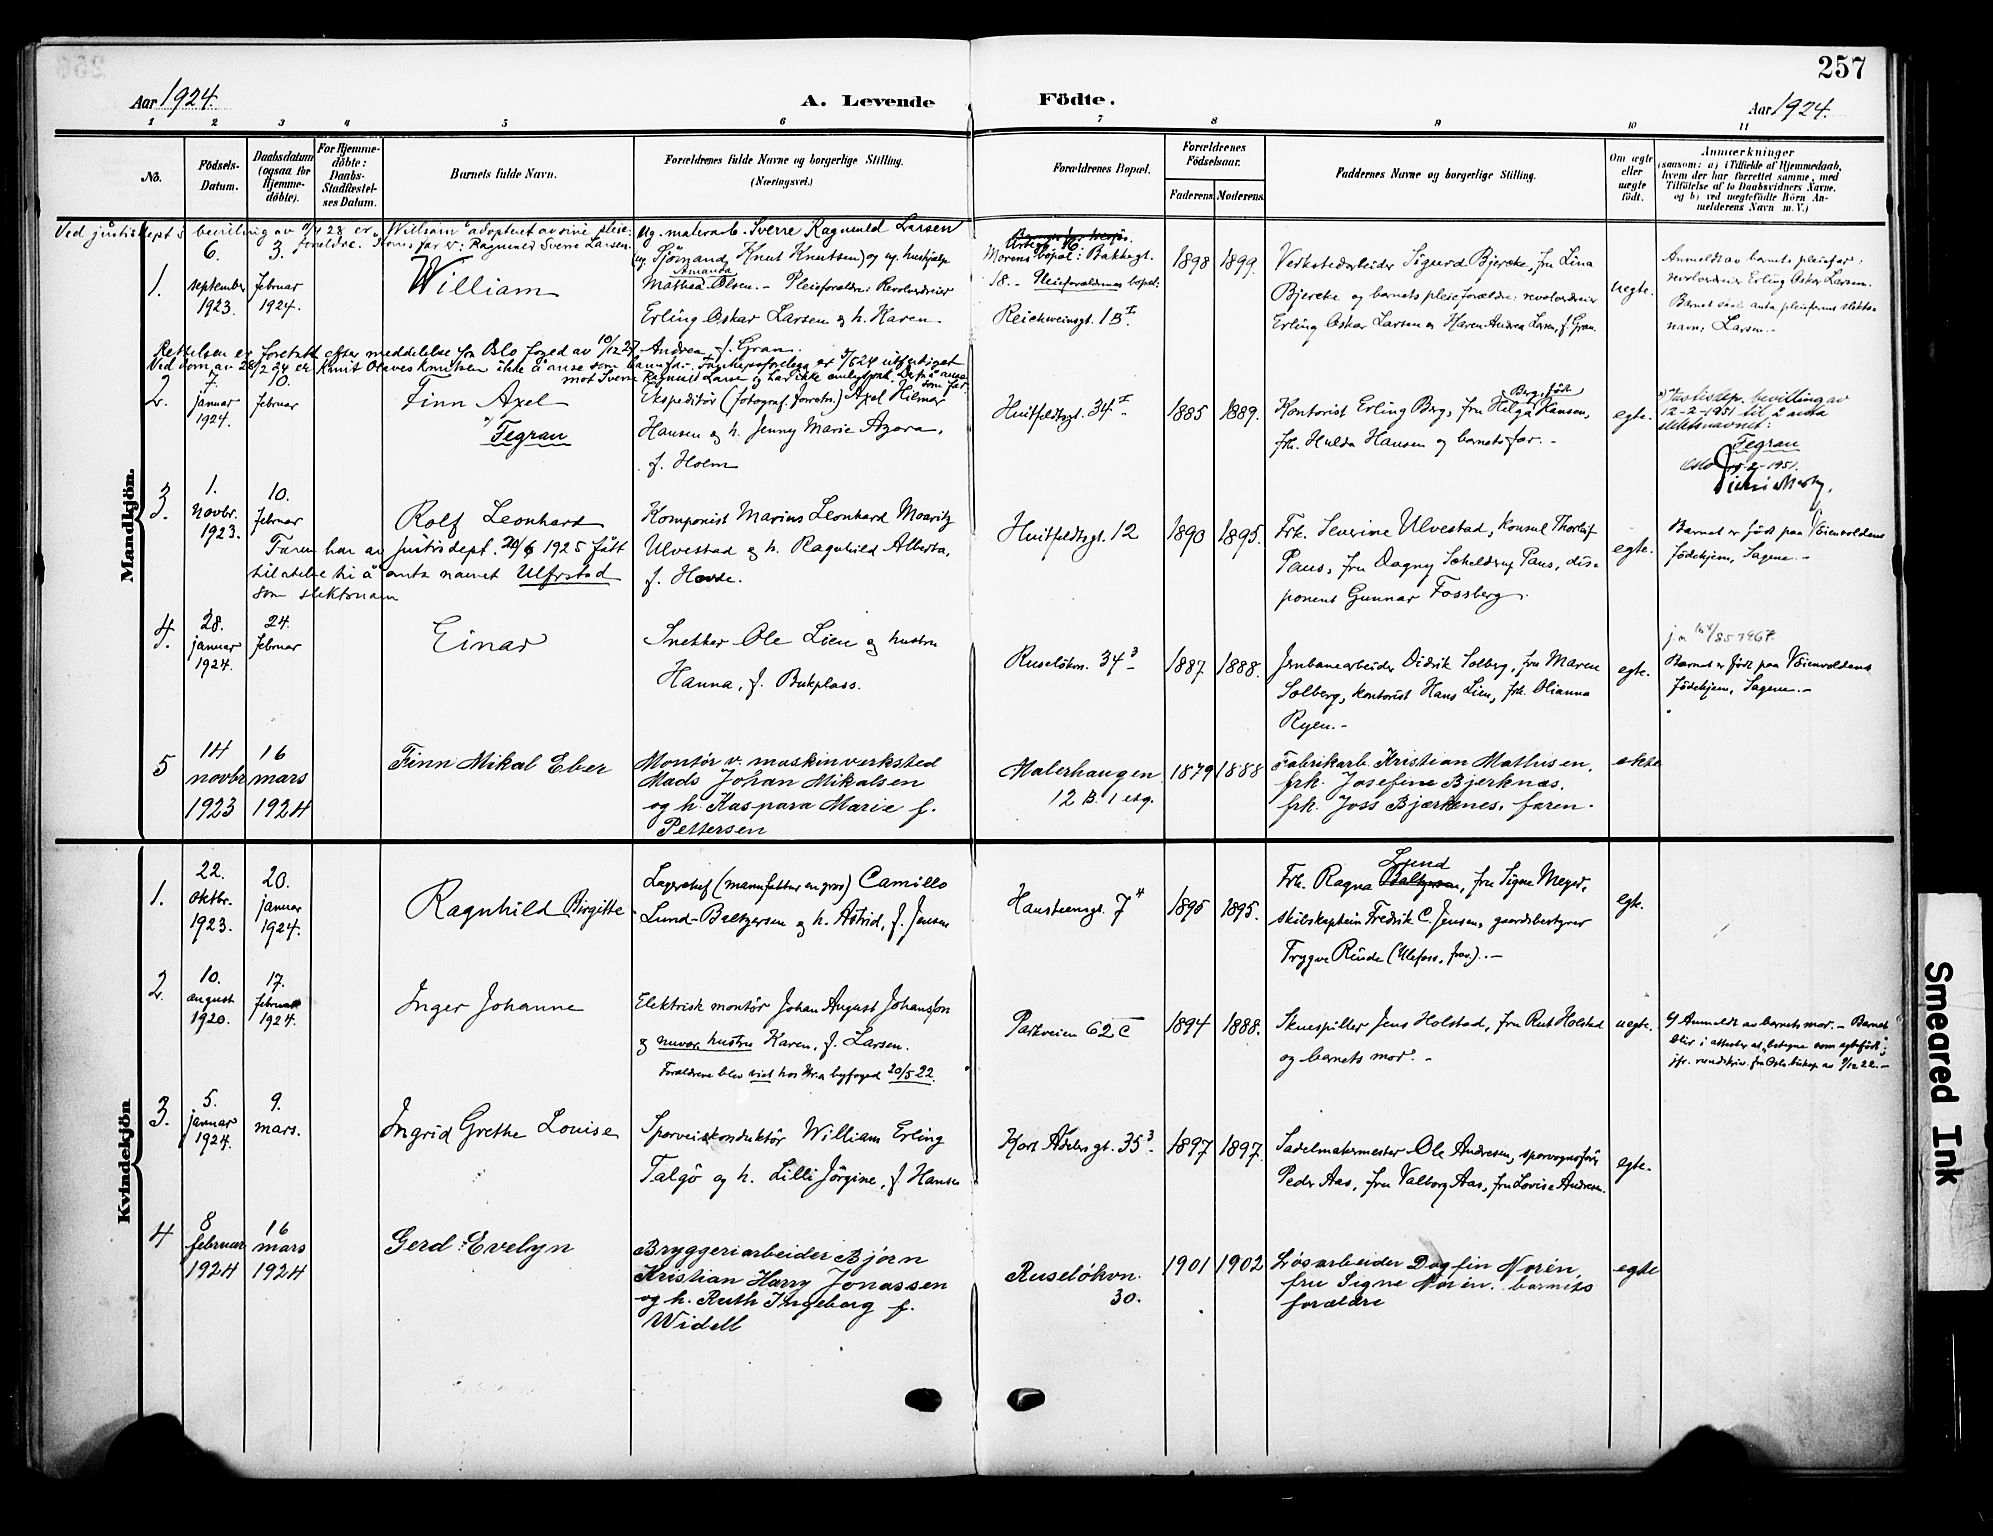 257
Aar 1924.
A. Levende Födte.
Aar 1924.
1 2 3 4 5 6 7 8 9 10 11
No.
Födsels-
Datum.
Daabsdatum
(ogsaa for
Hjemme-
döbte).
For Hjemme-
döbte:
Daabs-
Stadfæstel-
ses Datum.
Barnets fulde Navn.
Forældrenes fulde Navne og borgerlige Stilling.
(Næringsvei.)
Forældrenes Bopæl.
Forældrenes
Födselsaar.
Faderens Moderens
Faddernes Navne og borgerlige Stilling.
Om ægte
eller
uægte
födt.
Anmærkninger
(saasom: a) i Tilfælde af Hjemmedaab,
hvem der har forrettet samme, med
Tilföielse af to Daabsvidners Navne,
og b) ved uægtefödte Börn An-
melderens Navn m. V.)
Mandkjön.
Ved justisdept's bevilling av 28 er "William" adoptert av sine pleie-
foreldre. Barnets far er: Ragnvald Sverre Larsen.
1.
6.
september
1923.
3.
februar
1924.
William
Ug. malerarb. Sverre Ragnvald Larsen
(ug. Sjömand Knut Knutsen) og ug. hushjelp
Amanda
Mathea Olsen. - Pleieforældre: Revolverdreier
Erling Oskar Larsen og h. Karen
Andrea, f. Gran.
Morens bopæl: Bakkegt.
18. - Pleieforældrenes bopæl:
Reichweinsgt. 1 B I.
1898 1899.
Verkstedarbeider Sigurd Bjercke, fru Lina
Bjercke og barnets pleieforældre: revolverdreier
Erling Oskar Larsen og Karen Andrea Larsen, f. Gran.
uegte.
Anmeldt av barnets pleiefar:
revolverdreier Erling Oskar Larsen.
Barnet skal anta pleiefarens slekts-
navn: Larsen.
Rettelsen er foretatt efter meddelelse fra Oslo foged av 10/12 27.
Ved dom av 28/2 24 er Knut Olaves Knutsen ikke å anse som barnefar. Farskapsforelegg er 9/5 24 utferdiget
mot Sverre Ragnvald Larsen og har ikke
som far.
2.
7.
januar
1924.
10.
februar
Finn Axel
x) Tegran
Ekspeditör (fotograf. forretn.) Axel Hilmar
Hansen og h. Jenny Marie Azora,
f. Holm
Huitfeldtsgt. 34 I
1885 1889.
Kontorist Erling Berg, fru Helga Hansen,
frk. Hulda Hansen og barnets far. -
egte.
x) Justisdep. bevilling av
12-2-1951 til å anta
slektsnavnet:
Tegran
Oslo -2-1951.
3.
1.
novbr.
1923.
10.
februar
Rolf Leonhard
Faren har av justisdept. 20/6 1925 fått
tilatelse til å anta navnet Ulfrstad
som slektsnavn
Komponist Marius Leonhard Moaritz
Ulvestad og h. Ragnhild Alberta,
f. Hovde.
Huitfeldtsgt. 12
1890 1895.
Frk. Severine Ulvestad, konsul Thorleif
Paus, fru Dagny Schelderup Paus, dis-
ponent Gunnar Fossberg.
egte.
Barnet er född paa Vöienvoldens
födehjem, Sagene. -
4.
28.
januar
1924.
24.
februar
Einar
Snekker Ole Lien og hustru
Hanna, f. Bukplass.
Ruselökvn. 34 3
1887 1888.
Jernbanearbeider Didrik Solberg, fru Maren
Solberg, kontorist Hans Lien, frk. Olianna
Ryen. -
egte.
Barnet er född paa Vöienvoldens
födehjem, Sagene. -
5
14
novbr
1923
16
mars
1924
Finn Mikal Eber
Montör v. maskinverksted
Mads Johan Mikalsen
og h. Kaspara Marie f.
Pettersen
Malerhaugen
12 B. 1 etg.
1879 1888
Fabrikarb. Kristian Mathisen,
frk. Josefine Bjerknæs,
frk. Joss Bjærkenes, faren.
ekte
Kvindekjön
1.
22.
oktbr.
1923.
20.
januar
1924.
Ragnhild Birgitte
Lagerchef (manufaktur en gros) Camillo
Lund-Baltzersen og h. Astrid, f. Jensen
Hansteensgt. 7 4
1895 1895.
Lund
Frk. Ragna Baltzersen, fru Signe Meyer,
skibskaptein Fredrik C. Jensen, gaardsbestyrer
Trygve Rinde (Ulefoss, frav.). -
egte.
2.
10.
august
1920.
17.
februar
1924.
Inger Johanne
Elektrisk montör Johan August Johansson
og nuvær. hustru Karen, f. Larsen.
Forældrene blev viet hos Kr.a byfoged 20/5 22.
Parkveien 62 C
1894 1888.
Skuespiller Jens Holstad, fru Rut Holstad
og barnets mor. -
uegte.
Anmeldt av barnets mor. - Barnet
blir i attester at betegne som egtefödt,
jfr. rundskriv fra Oslo biskop av 9/12 22. -
3.
5.
januar
1924.
9.
mars.
Ingrid Grethe Louise
Sporveiskonduktör William Erling
Talgö og h. Lilli Jörgine, f. Hansen
Kort Adelers gt. 35 3
1897 1897.
Sadelmakermester Ole Andresen, sporvognsförer
Peder Aas, fru Valborg Aas, fru Lovise Andresen.
egte.
4
8
februar
1924
16
mars
1924
Gerd Evelyn
Bryggeriarbeider Bjørn
Kristian Harry Jonassen
og h. Ruth Ingeborg f.
Widell
Ruselökvn.
30.
1901 1902
Løsarbeider Dagfin Norén
fru Signe Norén. barnets
forældre
egte
Smeared Ink